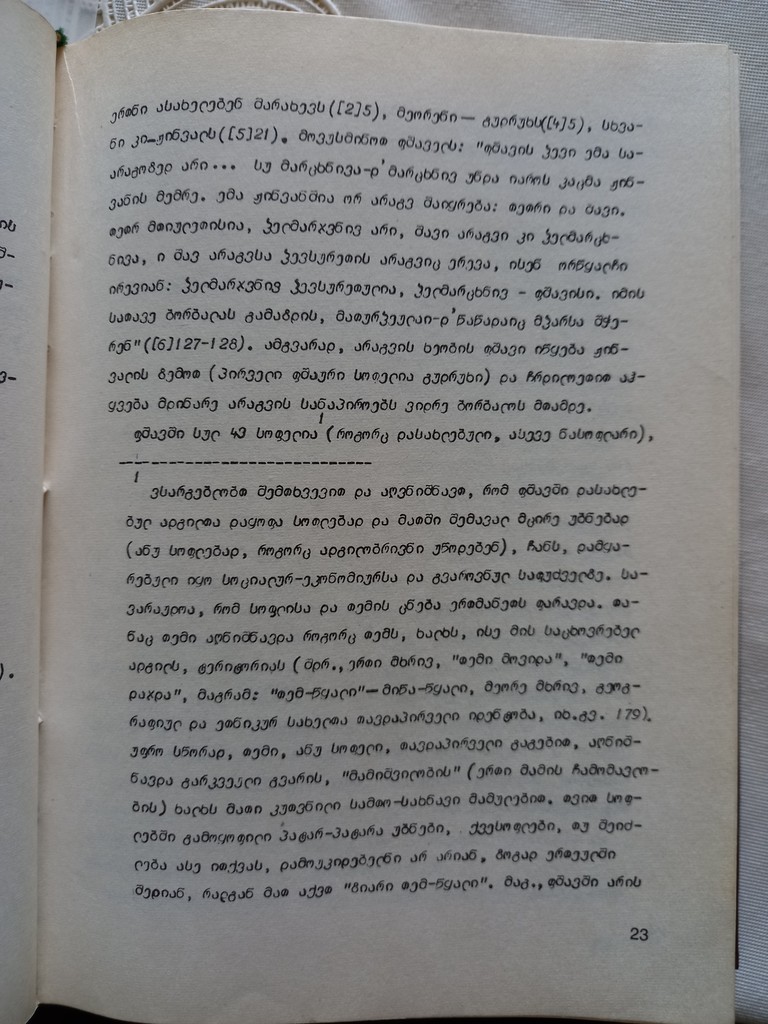 ერთნი ასახელებენ შარახევს ([2]5), მეორენი — გუდრუხს([4]5), სხვა-
ნი კი—ჟინვალს([5]21). მოვუსმინოთ ფშაველს: "ფშავის ჴევი ემა სა-
არაგოზედ არი... სუ მარცხნივა-დ'მარცხნივ უნდა იაროს კაცმა ჟინ-
ვანის მემრე. ემა ჟინვანშია ორ არაგვ შაიყრება: თეთრი და შავი.
თეთრ მთიულეთისია, ჴელმარჯვნივ არი, შავი არაგვი კი ჴელმარცხ-
ნივა, ი შავ არაგვსა ჴევსურეთის არაგვიც ერევა, ისენ ორწყალჩი
ირევიან: ჴელმარჯვნივ ჴევსურეთულია, ჴელმარცხნივ - ფშავისი. იმის
სათავე ბორბალას გამაზდის, მათურჴეული-დ'წაწადაიც მჴარსა მჭე-
რენ"([6]127-128). ამგვარად, არაგვის ხეობის ფშავი იწყება ჟინ-
ვალის ზემოთ (პირველი ფშაური სოფელია გუდრუხი) და ჩრდილოეთით აჰ-
ყვება მდინარე არაგვის სანაპიროებს ვიდრე ბორბალოს მთამდე.
ფშავში სულ 43 სოფელია¹ (როგორც დასახლებული, ასევე ნასოფლარი),
1 ვსარგებლობთ შემთხვევით და აღვნიშნავთ, რომ ფშავში დასახლე-
ბულ ადგილთა დაყოფა სოფლებად და მათში შემავალ მცირე უბნებად
(ანუ სოფლებად, როგორც ადგილობრივნი უწოდებენ), ჩანს, დამყა-
რებული იყო სოციალურ-ეკონომიურსა და გვაროვნულ საფუძველზე. სა-
ვარაუდოა, რომ სოფლისა და თემის ცნება ერთმანეთს ფარავდა. თა-
ნაც თემი აღნიშნავდა როგორც თემს, ხალხს, ისე მის საცხოვრებელ
ადგილს, ტერიტორიას (შდრ., ერთი მხრივ, "თემი მოვიდა", "თემი
დაჯდა", მაგრამ: "თემ-წყალი"—მიწა-წყალი, მეორე მხრივ, გეოგ-
რაფიულ და ეთნიკურ სახელთა თავდაპირველი იდენტობა, იხ.გვ. 179).
უფრო სწორად, თემი, ანუ სოფელი, თავდაპირველი გაგებით, აღნიშ-
ნავდა გარკვეული გვარის, "მამიშვილობის" (ერთი მამის ჩამომავლო-
ბის) ხალხს მათი კუთვნილი სამთო-სახნავი მამულებით. თვით სოფ-
ლებში გამოყოფილი პატარ-პატარა უბნები, ქვესოფლები, თუ შეიძ-
ლება ასე ითქვას, დამოუკიდებელნი არ არიან, ზოგად ერთეულში
შედიან, რადგან მათ აქვთ "ზიარი თემ-წყალი". მაგ., ფშავში არის
23